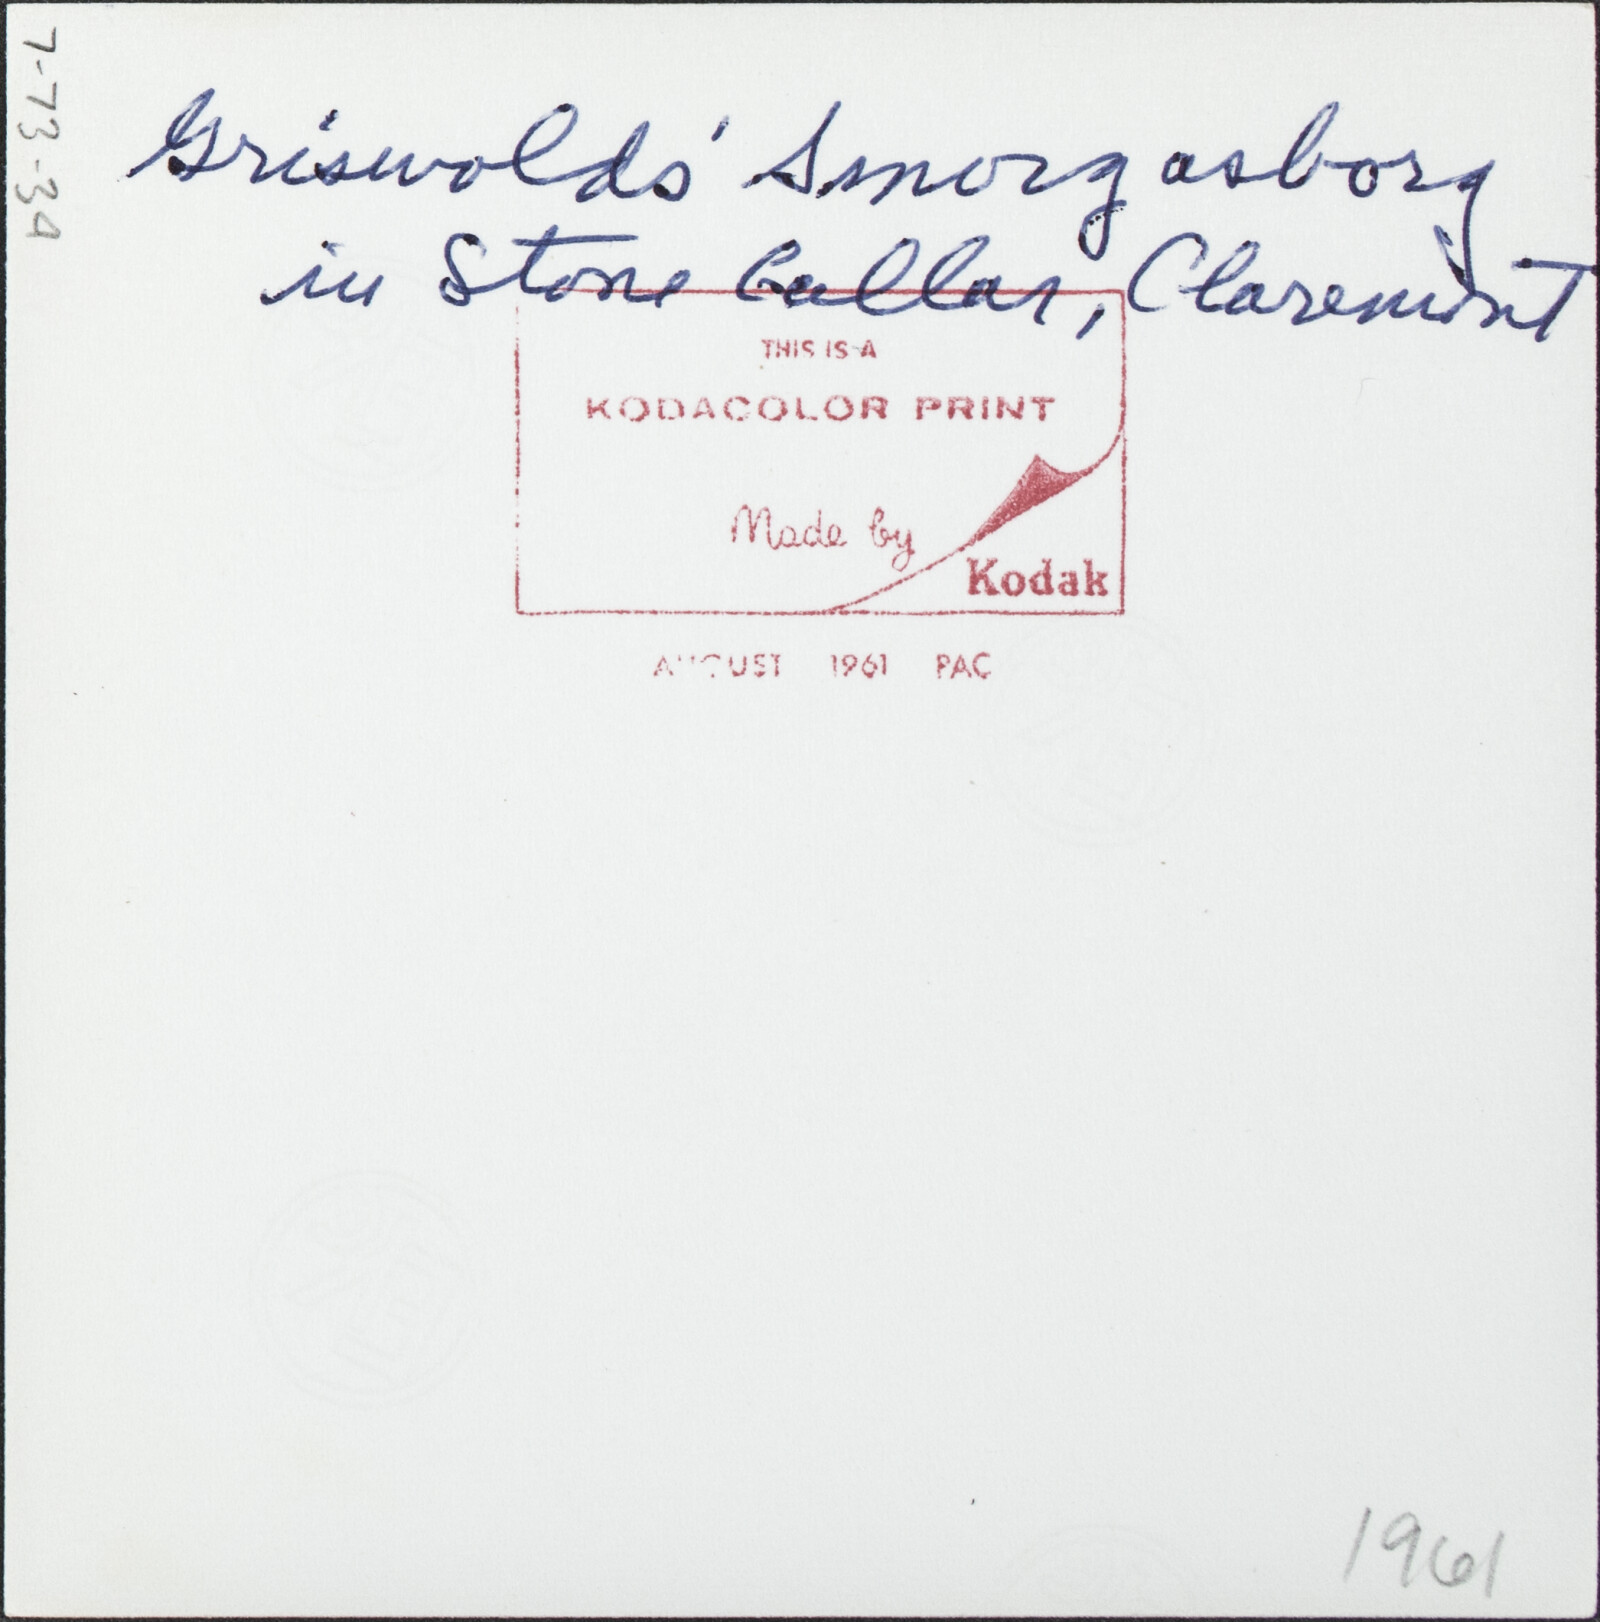 7-73-34
Griswolds' Smorgasborg
in Stone Cellar, Claremont
THIS IS A
KODACOLOR PRINT
Made by
Kodak
AUGUST 1961 PAC
1961